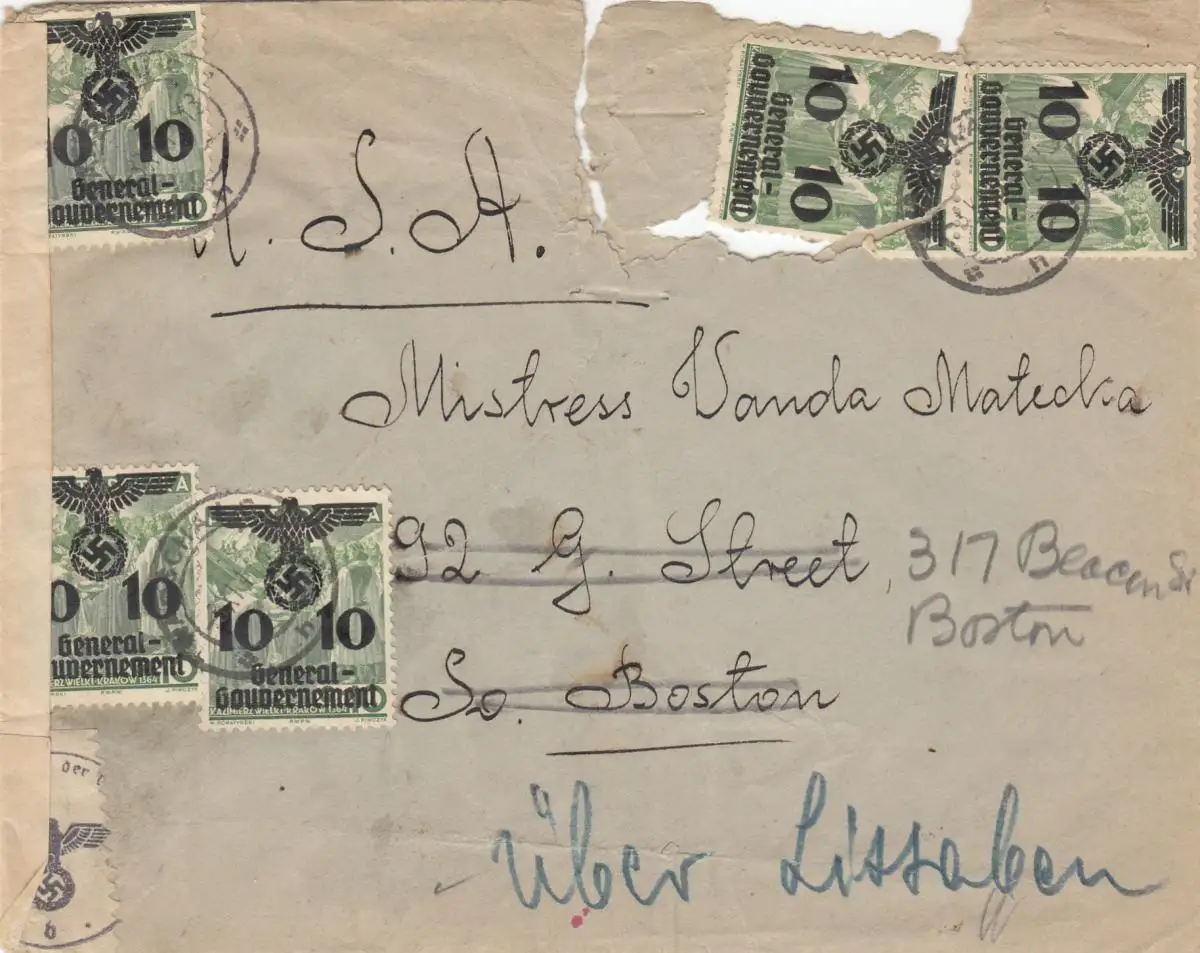 10 10
General-
Gouvernement
10 10
General-
Gouvernement
10 10
General-
Gouvernement
U. S. A.
Mistress Vanda Matecka
92 G. Street, 317 Beacon St
Boston
So. Boston
A
0 10
General-
uvernement
ERZ WIELKI-KRAKÓW 1364
J. PIWCZYK
A
10 10
General-
Gouvernement
KAZIMIERZ WIELKI-KRAKÓW 1364
P.W.P.W. J. PIWCZYK
Über Lissabon
der
b